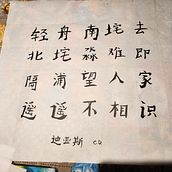 轻舟南垞去
北垞淼难即
隔浦望人家
遥遥不相识
迪亚斯 cq